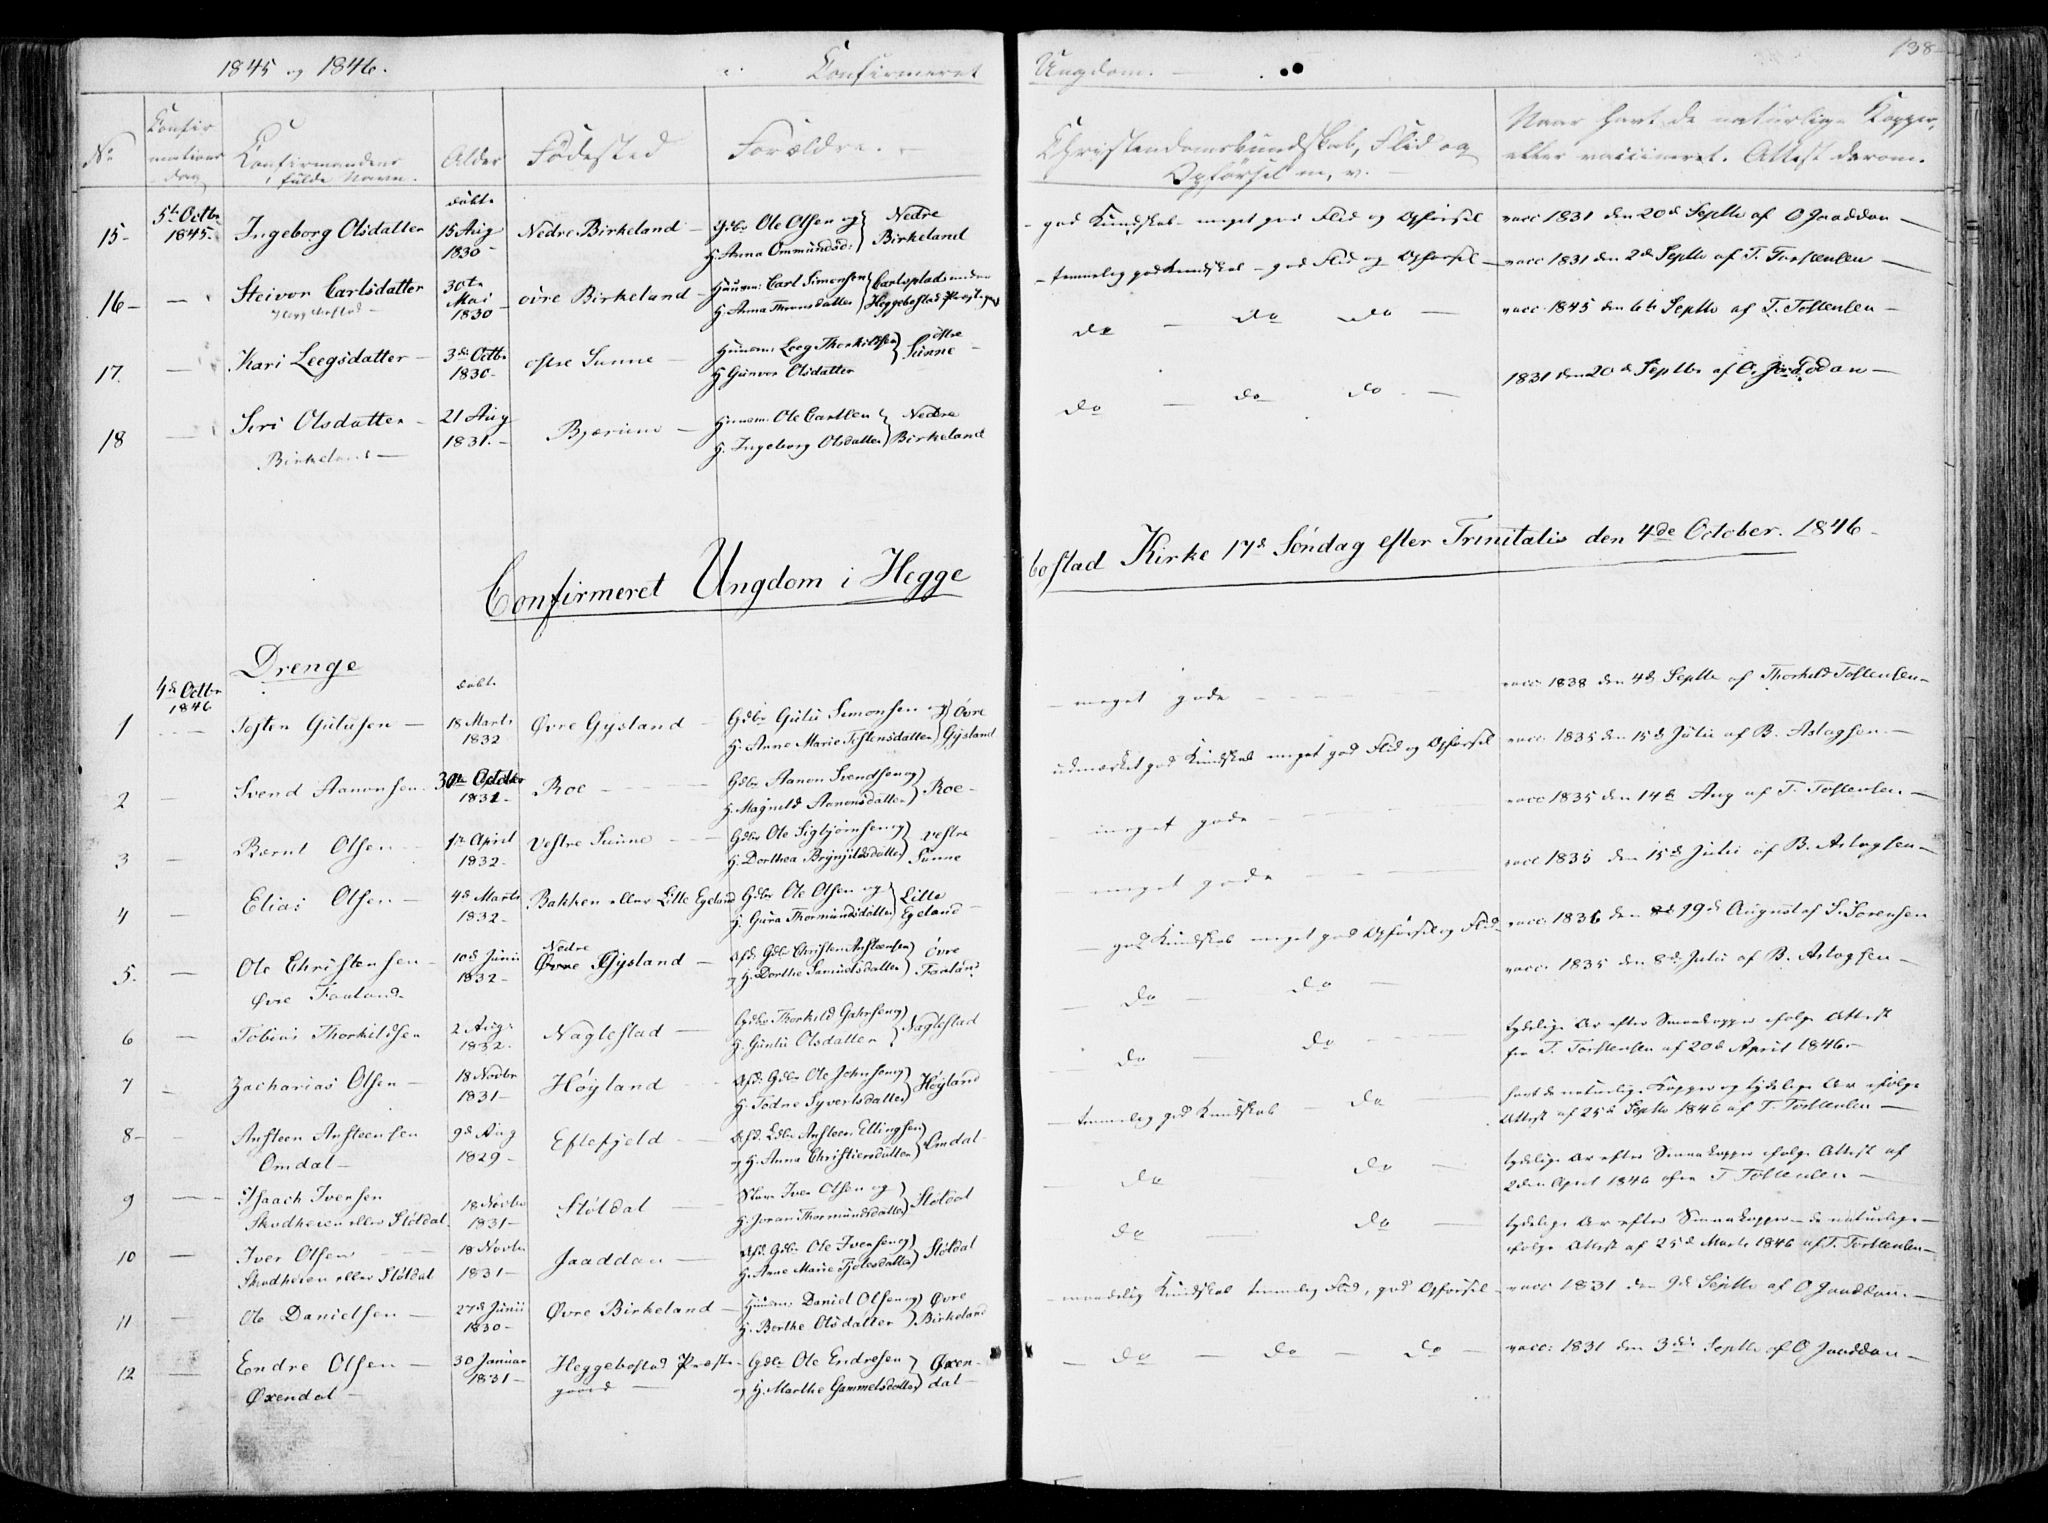 1845 og 1846.
Confirmeret Ungdom.
138
No
Confirmations Dag
Confirmandens fulde Navn.
Alder
Fødested
Forældre.
Christendomskundskab, Flid og Opførsel m, v.
Naar havt de naturlige Kopper, eller vaccineret. Attest derom.
15 5te Octbr 1845. Ingeborg Olsdatter døbt 15 Aug 1830 Nedre Birkeland Gdbr Ole Olsen og H. Anna Ommundsd: Nedre Birkeland god Kundskab meget god Flid og Opførsel vacc 1831 den 20d Septbr af O Jaaddan
16 Steivor Carlsdatter Heggebostad 30te Mai 1830 øvre Birkeland Huusm: Carl Simonsen H. Anna Thronsdatter Carlsplads under Heggebostad temmelig god Kundskab god Flid og Opførsel vacc 1831 den 2d Septbr af T. Tostensen
17. Kari Leegsdatter 3de Octbr 1830 østre Sunne Huusm: Leeg Thorkildsen H Gunvor Olsdatter østre Sunne do do do vacc 1845 den 6te Septbr af T. Tostensen
18 Siri Olsdatter Birkeland 21 Aug 1831. Huusm: Ole Carlsen H. Ingeborg Olsdatter Nedre Birkeland do do do 1831 den 20d Septbr af O. Jaaddan
Confirmeret Ungdom i Heggebostad Kirke 17d Søndag efter Trinitatis den 4de October. 1846
Drenge
1 4d Octbr 1846 Tosten Gulusen døbt 18 Marts 1832 Øvre Gysland Gdbr Gulu Simonsen og H. Anne Marie Tostensdatter Øvre Gysland meget gode vacc 1838 den 4d Septbr af Thorkild Tostensen
2 Svend Aanonsen October 1831 Roe Gdbr Aanon Svendsen og H. Magnild Aanonsdatter Roe udmærket god Kundskab meget god Flid og Opførsel vacc 1835 den 15d Julii af B. Aslagsen
3 Bernt Olsen 1te April 1832 Vestre Sunne Gdbr Ole Sigbjørnsen og H. Dorthea Brynjildsdatter Vestre Sunne meget gode vacc 1835 den 14d Aug af T. Tostensen
4 Elias Olsen 4d Marts 1832 Bakken eller Litle Egeland Gdbr Ole Olsen og H. Gura Thormundsdatter Litle Egeland meget gode vacc 1835 den 15d Julii af B. Aslagsen
5. Ole Christensen Øvre Fauland 10d Junii 1832 Nedre Øvre Gysland Afd. Gdbr Christen Ansteensen og H. Dorthe Samuelsdatter Øvre Fauland god Kundskab meget god Opførsel og Flid vacc: 1836 den 19d August af S. Sørensen
6 Tobias Thorkildsen 2 Aug: 1832. Naglestad Gdbr Thorkild og H. Gunlu Olsdatter Naglestad do do vacc. 1835 den 8d Julii af B. Aslagsen
7 Zacharias Olsen 18 Novbr 1831 Høyland Afd. Gdbr Ole Johnsen og H. Todne Syvertsdatter Høyland do do tydelige Ar efter Smaakopper ifølge Attest fra T. Tostensen af 20d April 1846.
8 Ansteen Ansteensen Omdal 9d Aug 1829 Eftefjeld Afd. Gdbr Ansteen Ellingsen og H. Anna Christiensdatter Omdal temmelig god Kundskab do havt de naturlige Kopper og tydelige Ar ifølge Attest af 25d Septbr 1846 af T. Tostensen
9 Isaach Iversen Skodheien eller Støldal 18 Novbr 1831 Støldal Iver Olsen og H. Joran Thormundsdatter Støldal do do tydelige Ar efter Smaakopper ifølge Attest af 2den April 1846 fra T Tostensen
10 Iver Olsen Skodheien eller Støldal 18 Novbr 1831 Jaaddan Afd. Gdbr Ole Iversen og H. Anne Marie Tjølesdatter Støldal do do tydelige Ar efter Smaakopper de naturlige ifølge Attest af 25d Marts 1846 af T. Tostensen
11 Ole Danielsen 27d Junii 1830 Øvre Birkeland Huusm: Daniel Olsen og H. Berthe Olsdatter Øvre Birkeland maadelig Kundskab temmelig Flid, god Opførsel vacc 1831 den 9d Septbr af O Jaaddan.
12 Endre Olsen Øxendal 30 Januar 1831 Heggebostad Præstegaard Gdbr Ole Endresen og H. Marthe Gammelsdatter Øxendal do do do vacc: 1831 den 3die Septbr af O Jaaddan